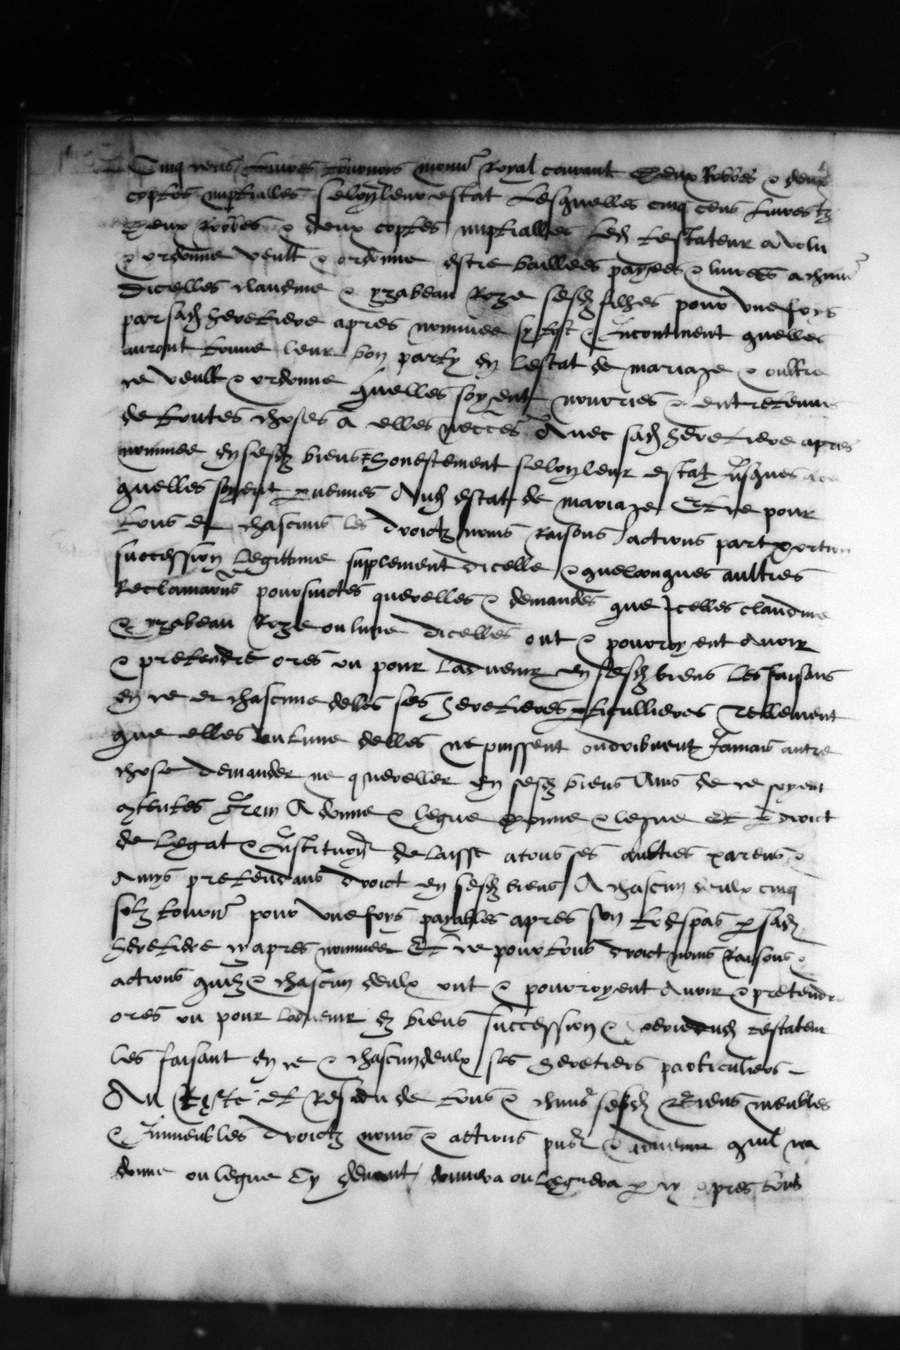 Cinq cens livres tournois monn^e Royal courant Deux Robbes & deux
coptes nuptialles selon leur estat Lesquelles cinq cens livres tz
Deux robbes & deux coptes nuptialles led testateur a volu
& ordonne veult & ordonne estre baillees payees & livrees a chun^e
Dicelles claudine & yzabeau Roze sesd filhes pour une foys
par sad heretiere apres nommee sy tost & Incontinent quelles
auront trouve leur bon party En Lestat de mariaze & oultre
ce veult & ordonne quelles soyent nourries & entretenues
de toutes choses a elles necces^res Avec sad heretiere apres
nommee En sesd biens honestement selon leur estat Jusques
quelles soyent p venues Aud estat de mariaze Et ce pour
tous et chascuns les droictz noms Raisons actions part portion
succession Legittime supplement dicelle & quelconques aultres
Reclamations poursuictes querelles & demandes que Icelles claudine
& yzabeau Roze ou lune dicelles ont & pourroyent Avoir
& pretendre ores ou pour Ladvenir En sesd biens Les faisans
En ce et chascune delles ses heretieres pticullieres Tellement
que elles ou lune delles ne puissent ou doibvent Jamais autre
chose demander ne quereller En sesd biens Ains de ce soyent
contentes Item A donne & legue donne & legue Et p droict
de Legat & Institution delaisse a tous ses aultres parens &
Amys pretendans droict En sesd biens A chascun deulx cinq
solz tourn^s pour une foys payables apres son trespas p sad
heretiere cy apres nommee Et ce pour tous droict noms Raisons &
actions quilz & chascun deulx ont & pourroyent Avoir & pretendre
ores ou pour Ladvenir Es biens succession & dud testateur
Les faisant En ce & chascun deulx ses heretiers particuliers
Au Reste et Residu de tous & chuns sesd Biens meubles
& Immeubles droictz noms & actions pns & advenir quil na
donne ou legue Cy devant donnera ou Leguera p cy apres tous